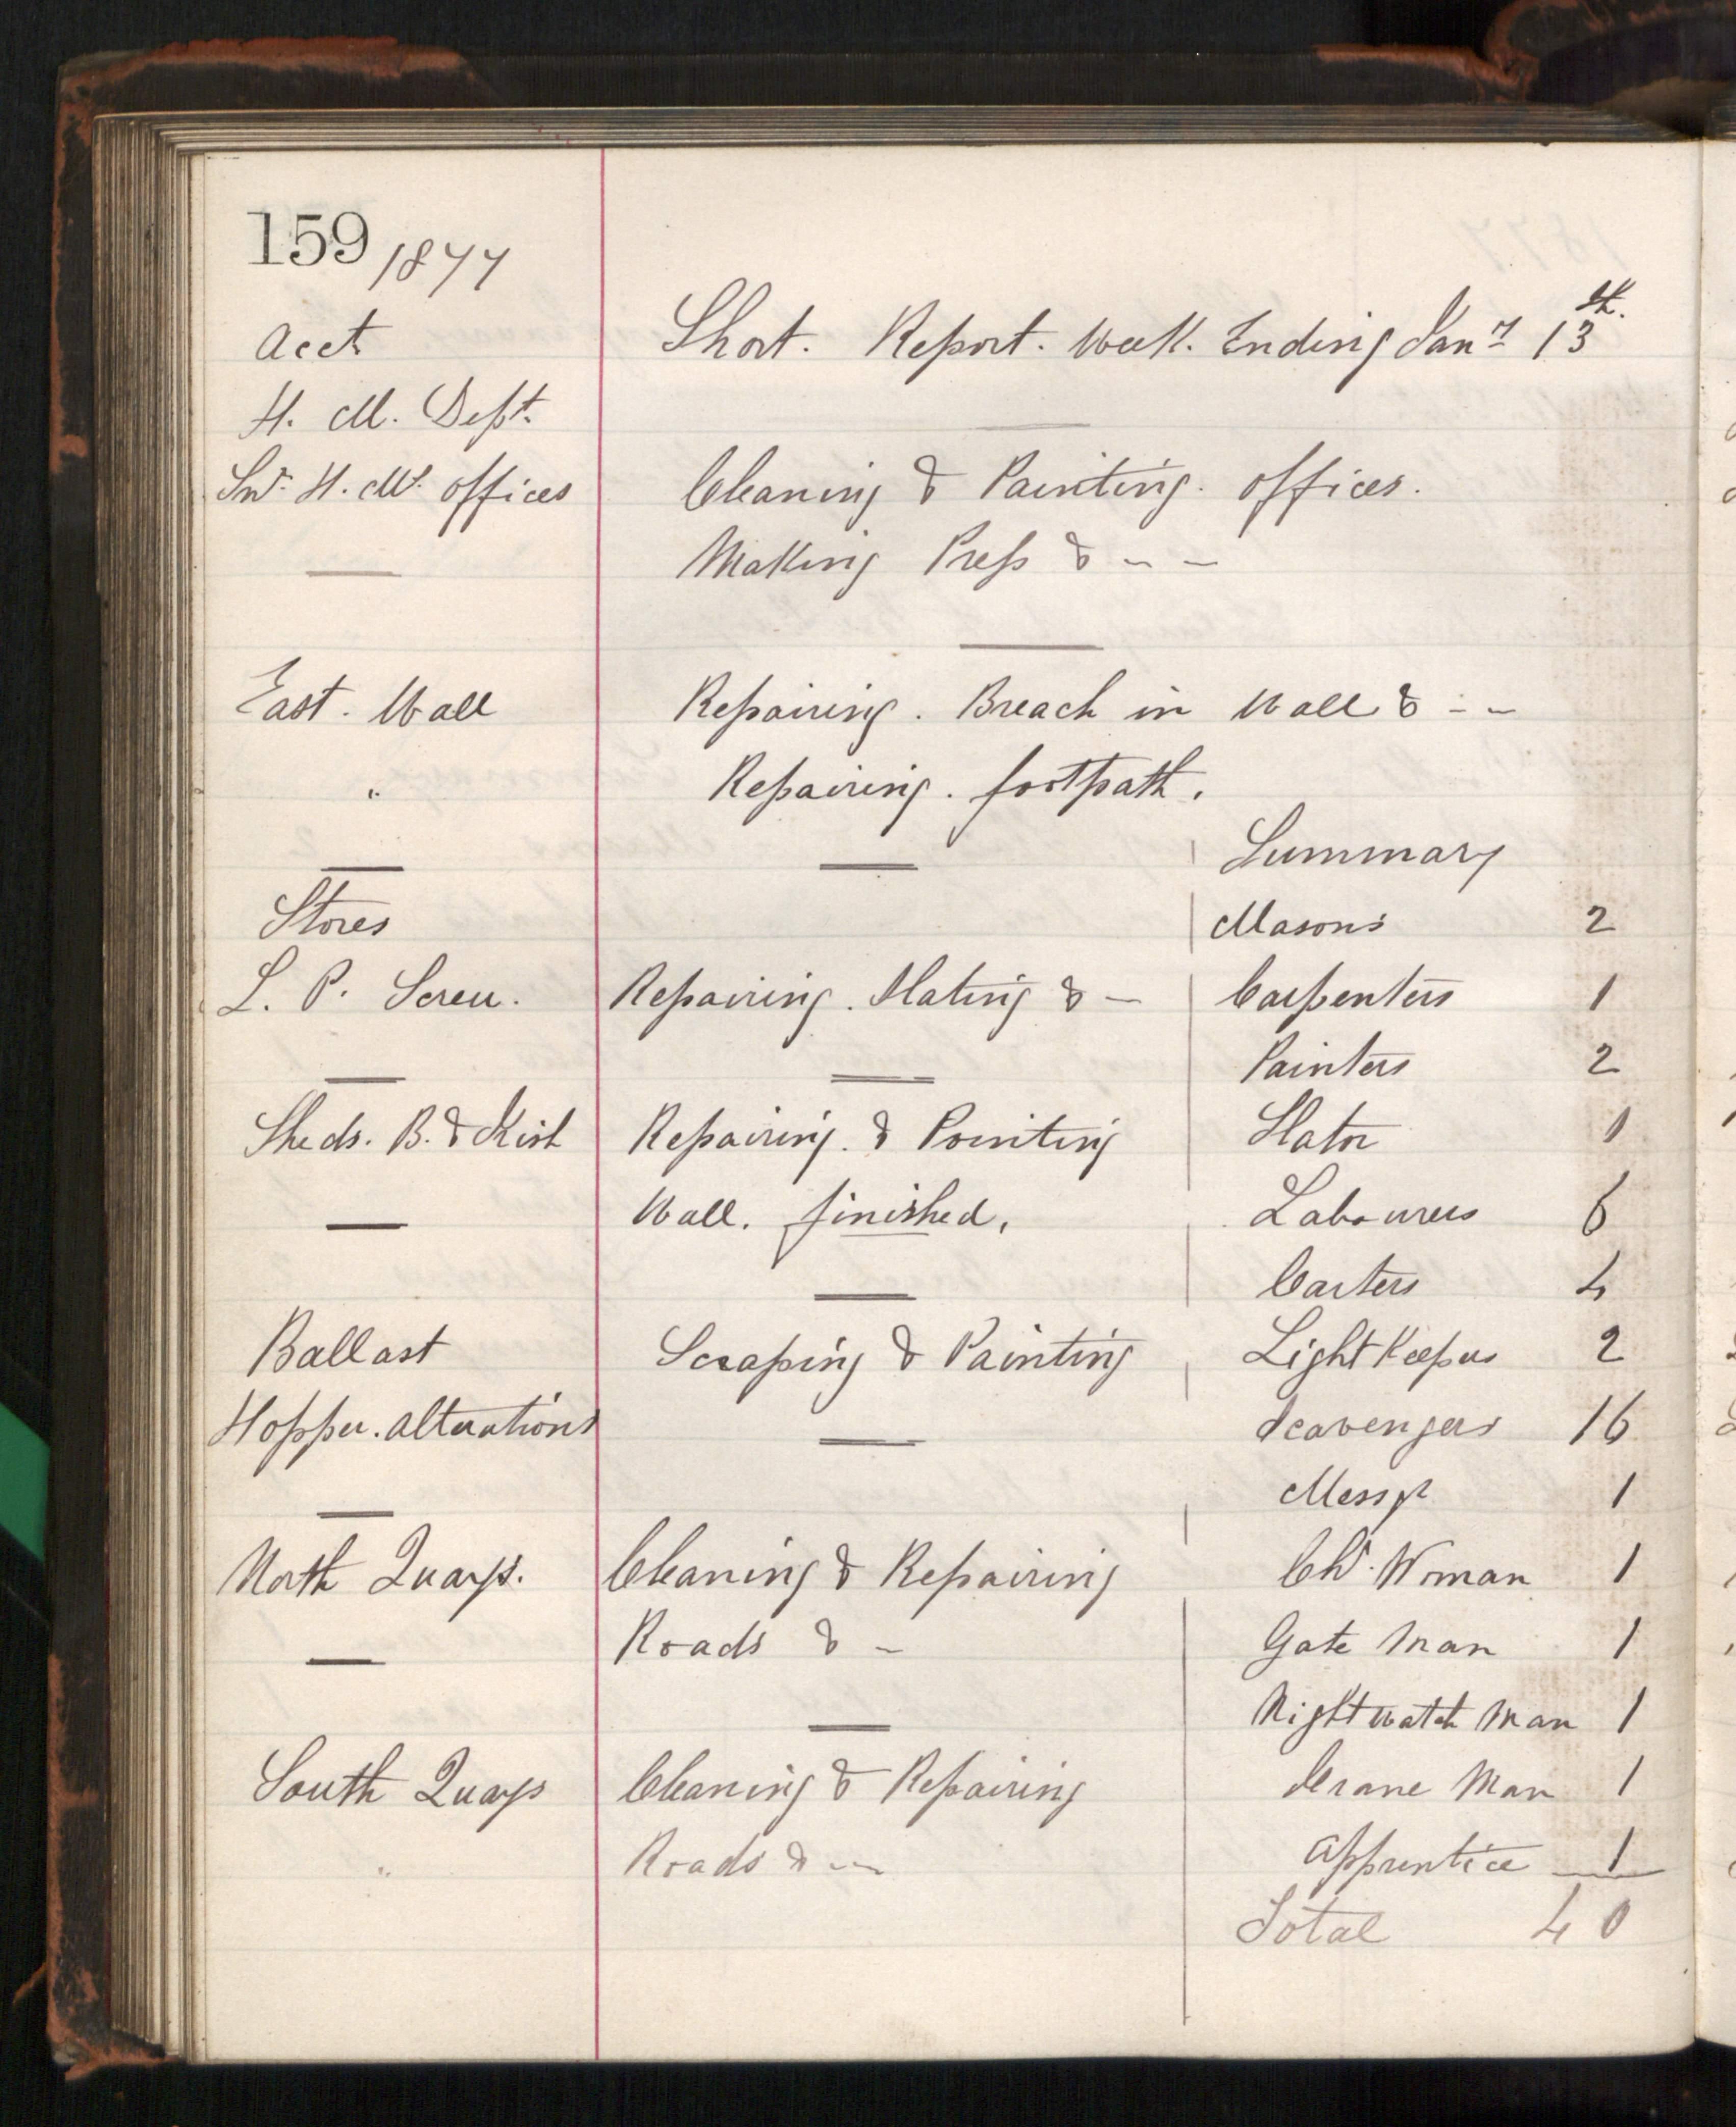 159 1877
Acct Short. Report. Week. Ending Jany 13th.
H. M. Dept.
H. Ms. offices Cleaning & Painting. offices.
Making Press & - -
East. Wall Repairing. Breach in Wall & - -
" Repairing. footpath.
Summary
Stores Masons 2
L. P. Repairing. Slating & - Carpenters 1
Painters 2
Sheds. B. & Repairing. & Pointing Slator 1
Wall. finished. Labourers 6
Carters 4
Ballast Scraping & Painting Light Keepers 2
Hopper. alterations Scavengers 16
Messgr 1
North Quays. Cleaning & Repairing Chr. Woman 1
Roads & - Gate Man 1
Night watch Man 1
South Quays Cleaning & Repairing Crane Man 1
" Roads & - - Apprentice 1
Total 40